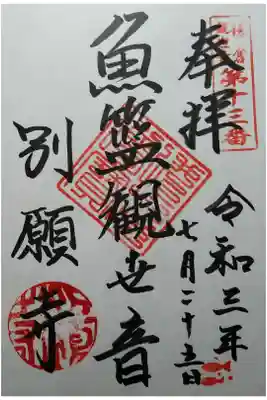 鎌倉
第十三番
奉拝
令和三年
七月二十五日
魚籃観世音
別願寺